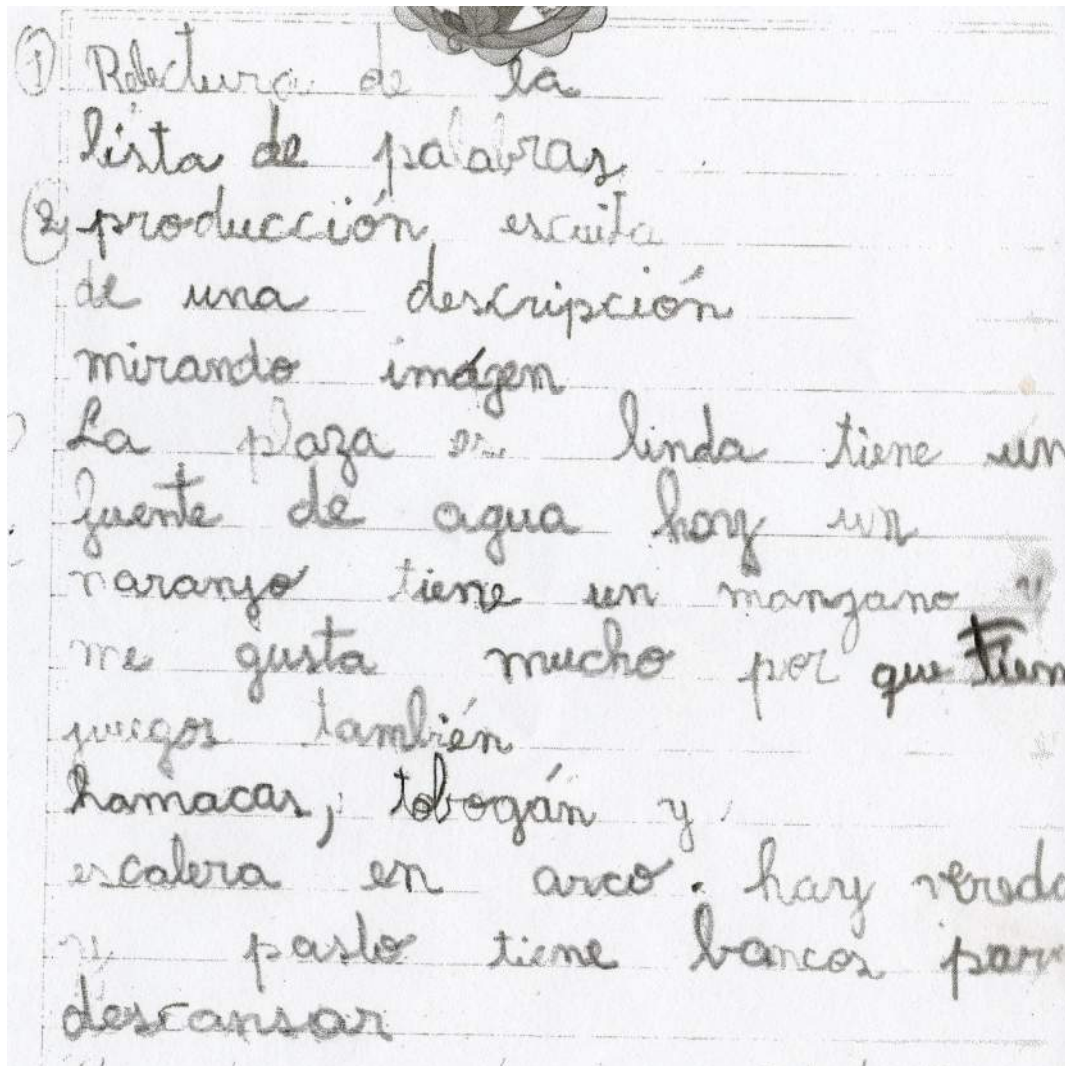 1 Relectura de la
lista de palabras
2 producción escrita
de una descripción
mirando imágen
La plaza es linda tiene un
fuente de agua hay un
naranjo tiene un manzano y
me gusta mucho por que tien
juegos también
hamacas, tobogán y
escalera en arco. hay vereda
y pasto tiene bancos para
descansar